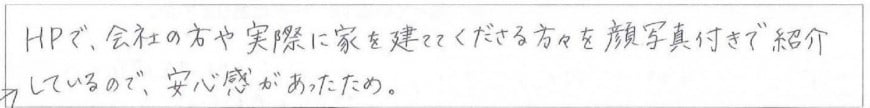 HPで、会社の方や実際に家を建ててくださる方々を顔写真付きで紹介
しているので、安心感があったため。